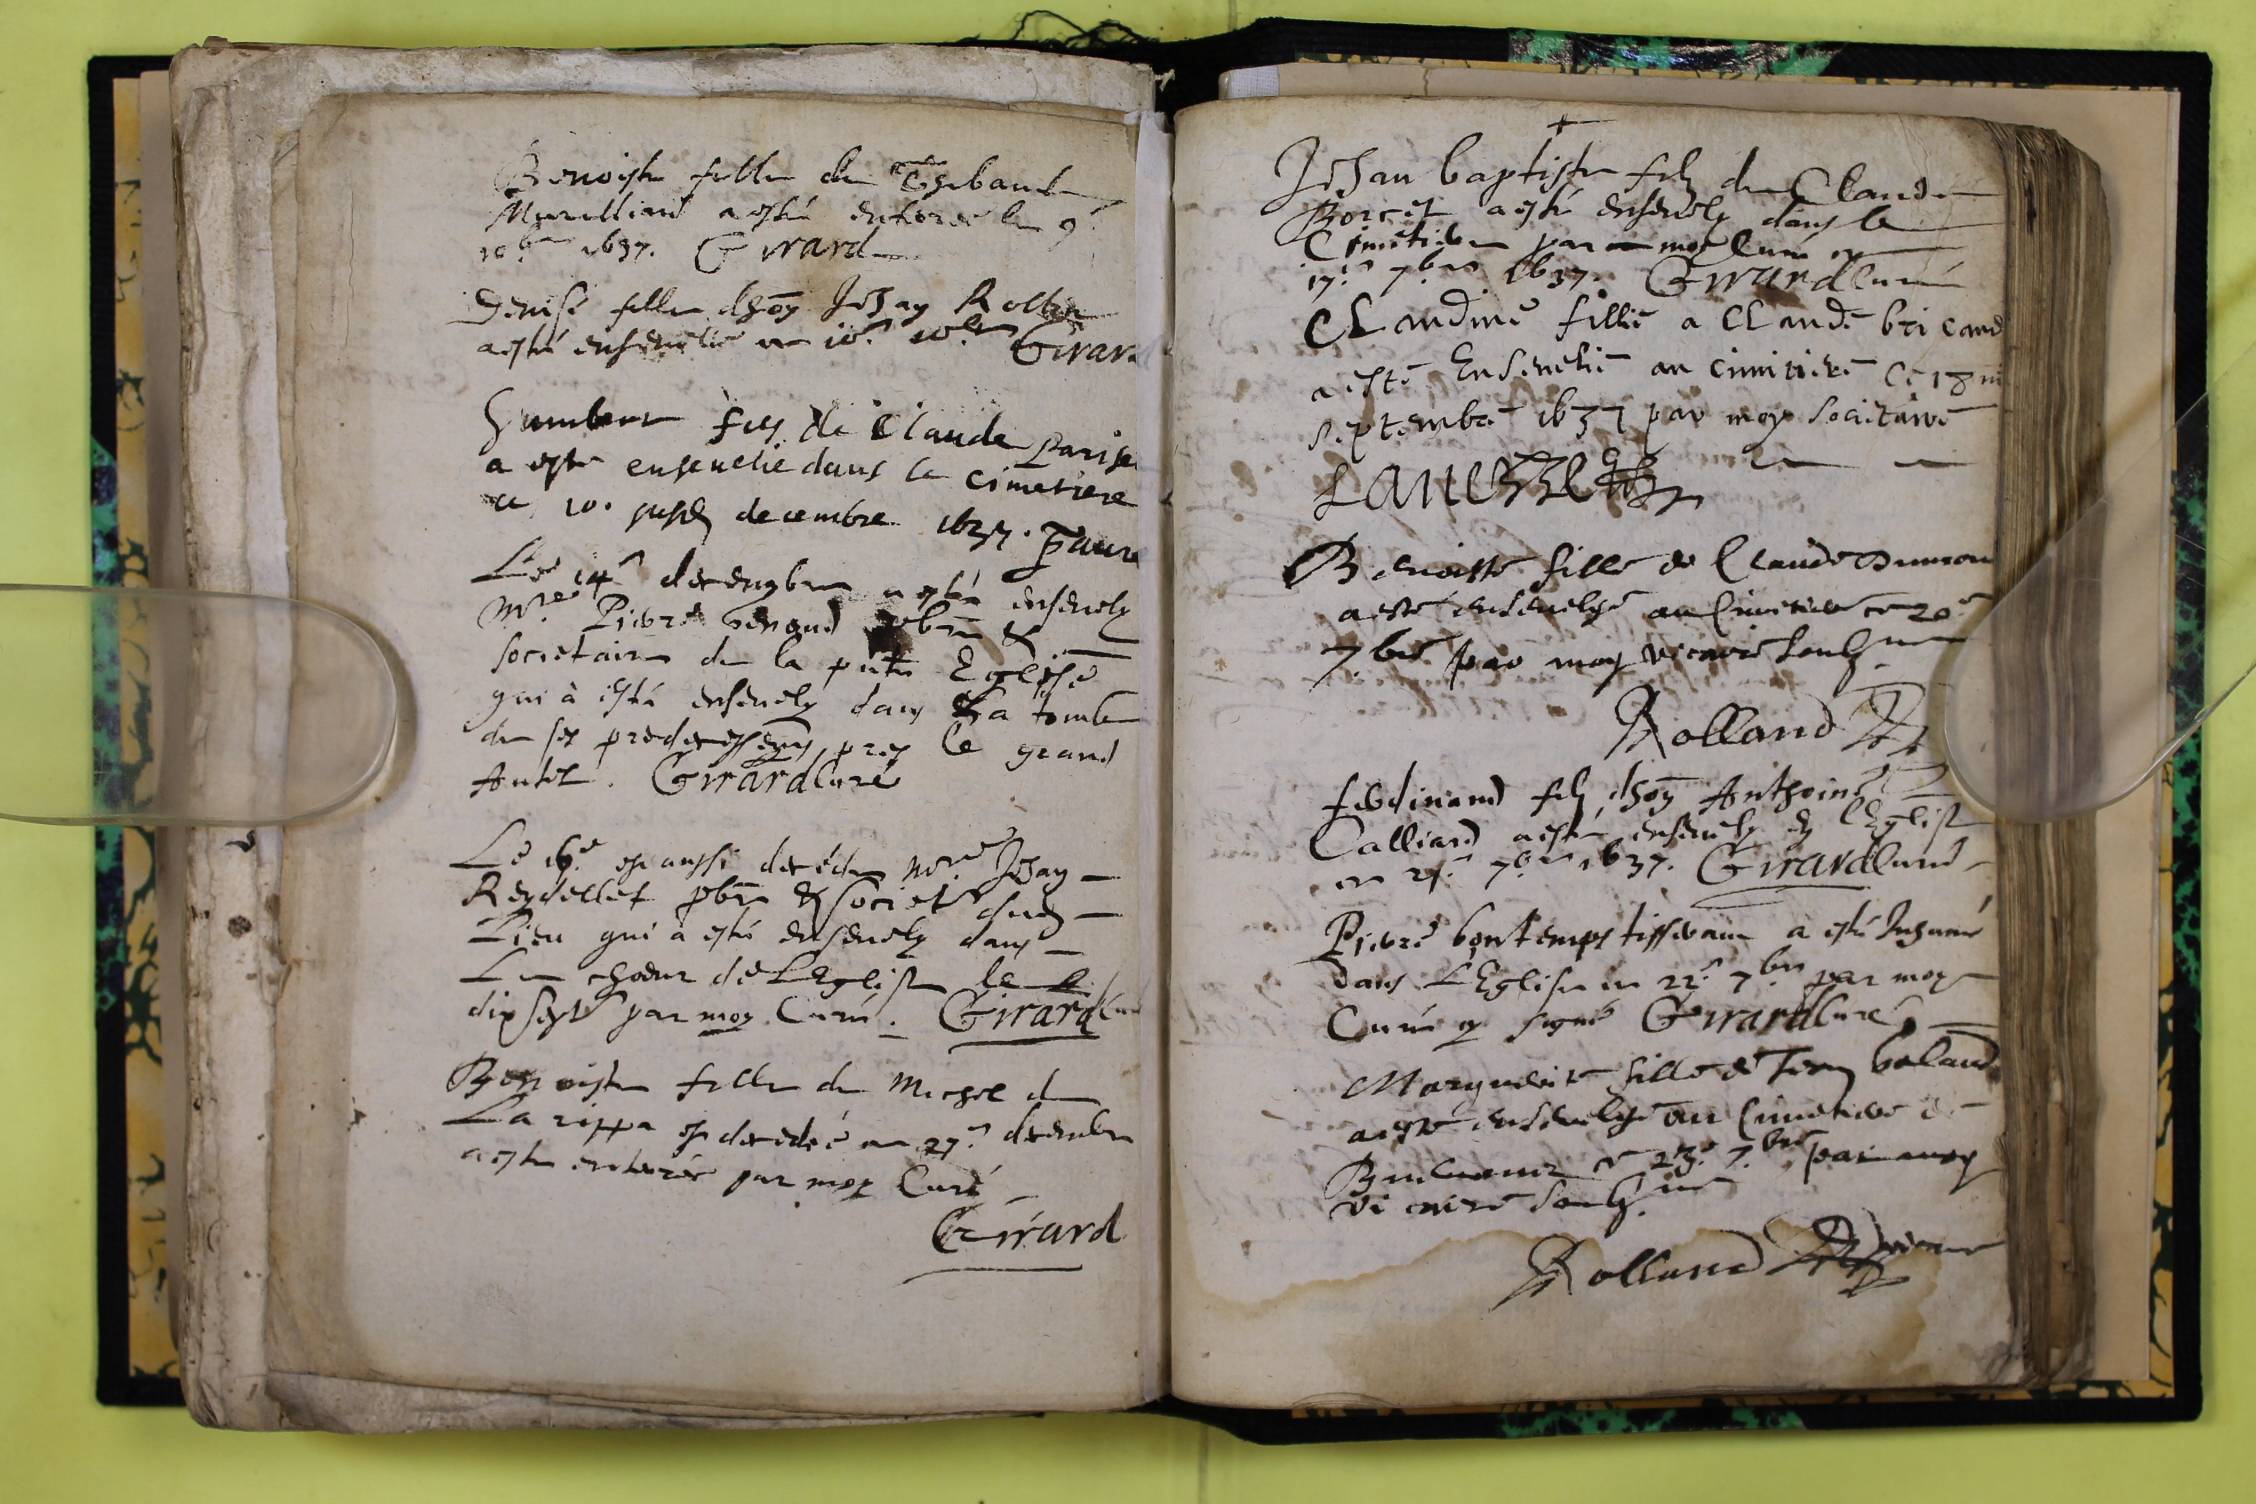 Benoiste fille de Thibaud
Murilliard a esté enterée le 9.e
10.bre 1637. Girard
Denise fille dhon Jehan Rollin
a esté ensevelie ce 10.e 10.bre Girard
Humbert fils de Claude Parise
a este ensevelie dans le cimetiere
ce 10. jusd decembre 1637. Faure
Le 14.e decengbre a esté ensevely
M.re Pierre pbre &
societaire de la pnte Eglise
qui à esté ensevely dans La tombe
de ses predecesseurs pres le grand
Autel. Girard Curé
Le 16.e est aussi decédé M.re Jehan
Reydellet pbre & societ.re dud
Lieu qui à esté ensevely dans
Le choeur de LEglise le
dix sept.e par moy Curé. Girard Curé
Benoiste fille de Michel de
La rippa est decedeé ce 27.e decembre
a este enterée par moy Curé
Girard
Jehan baptiste filz de Claude
Borcet a esté ensevely dans le
Cimetiere par moy Curé ce
17.e 7.bre 1637. Girard Curé
CLaudine fillie a CLaude bricand
a esté Ensevelie au cimitiere ce 18 me
septembre 1637 par moy sociétaire
Benoiste fille de Claude Dumon
a esté ensevelye au Cimetiere ce 20.e
7.bre par moy vicaire soubz.ne
Rolland
ferdinand filz dhon Anthoine
Calliard a esté ensevely en lEglise
ce 21.e 7.bre 1637. Girard Curé
Pierre bontemps tisserain a esté Inhumé
dans LEglise ce 22.e 7.bre par moy
Curé q signé Girard Curé
Marguerite fille de Jean
a esté ensevelye au Cimetiere de
ce 23.e 7.bre par moy
vicaire soubz.ne
Rolland vicaire